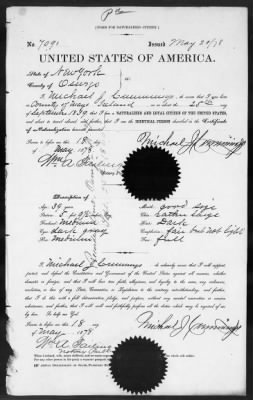 (FORM FOR NATURALIZED CITIZEN.)
No. 7091 Issued May 20/78
UNITED STATES OF AMERICA.
State of New York
County of Oswego
I, Michael J. Cummings, do swear that I was born
County of Mayo Ireland on or about the 25th day
of September 1839; that I am a NATURALIZED AND LOYAL CITIZEN OF THE UNITED STATES,
and about to travel abroad; and further, that I am the IDENTICAL PERSON described in the Certificate
of Naturalization herewith presented.
Sworn to before me this 18 day
of May 1878
Michael J Cummings
Wm A
Description of
Age: 39 years
Mouth: good size
Stature: 5 ft
Chin:
Forehead: medium
Hair: Dark
Eyes: dark gray
Complexion: fair but not light
Nose: medium
Face: full
I, Michael J Cummings, do solemnly swear that I will support,
protect, and defend the Constitution and Government of the United States against all enemies, whether
domestic or foreign; and that I will bear true faith, allegiance, and loyalty to the same, any ordinance,
resolution, or law of any State, Convention, or Legislature to the contrary notwithstanding; and further,
that I do this with a full determination, pledge, and purpose, without any mental reservation or evasion
whatsoever; and further, that I will well and faithfully perform all the duties which may be required of me
by law. So help me God.
Sworn to before me this 18 day
of May 1878
Michael J Cummings
Notary Public